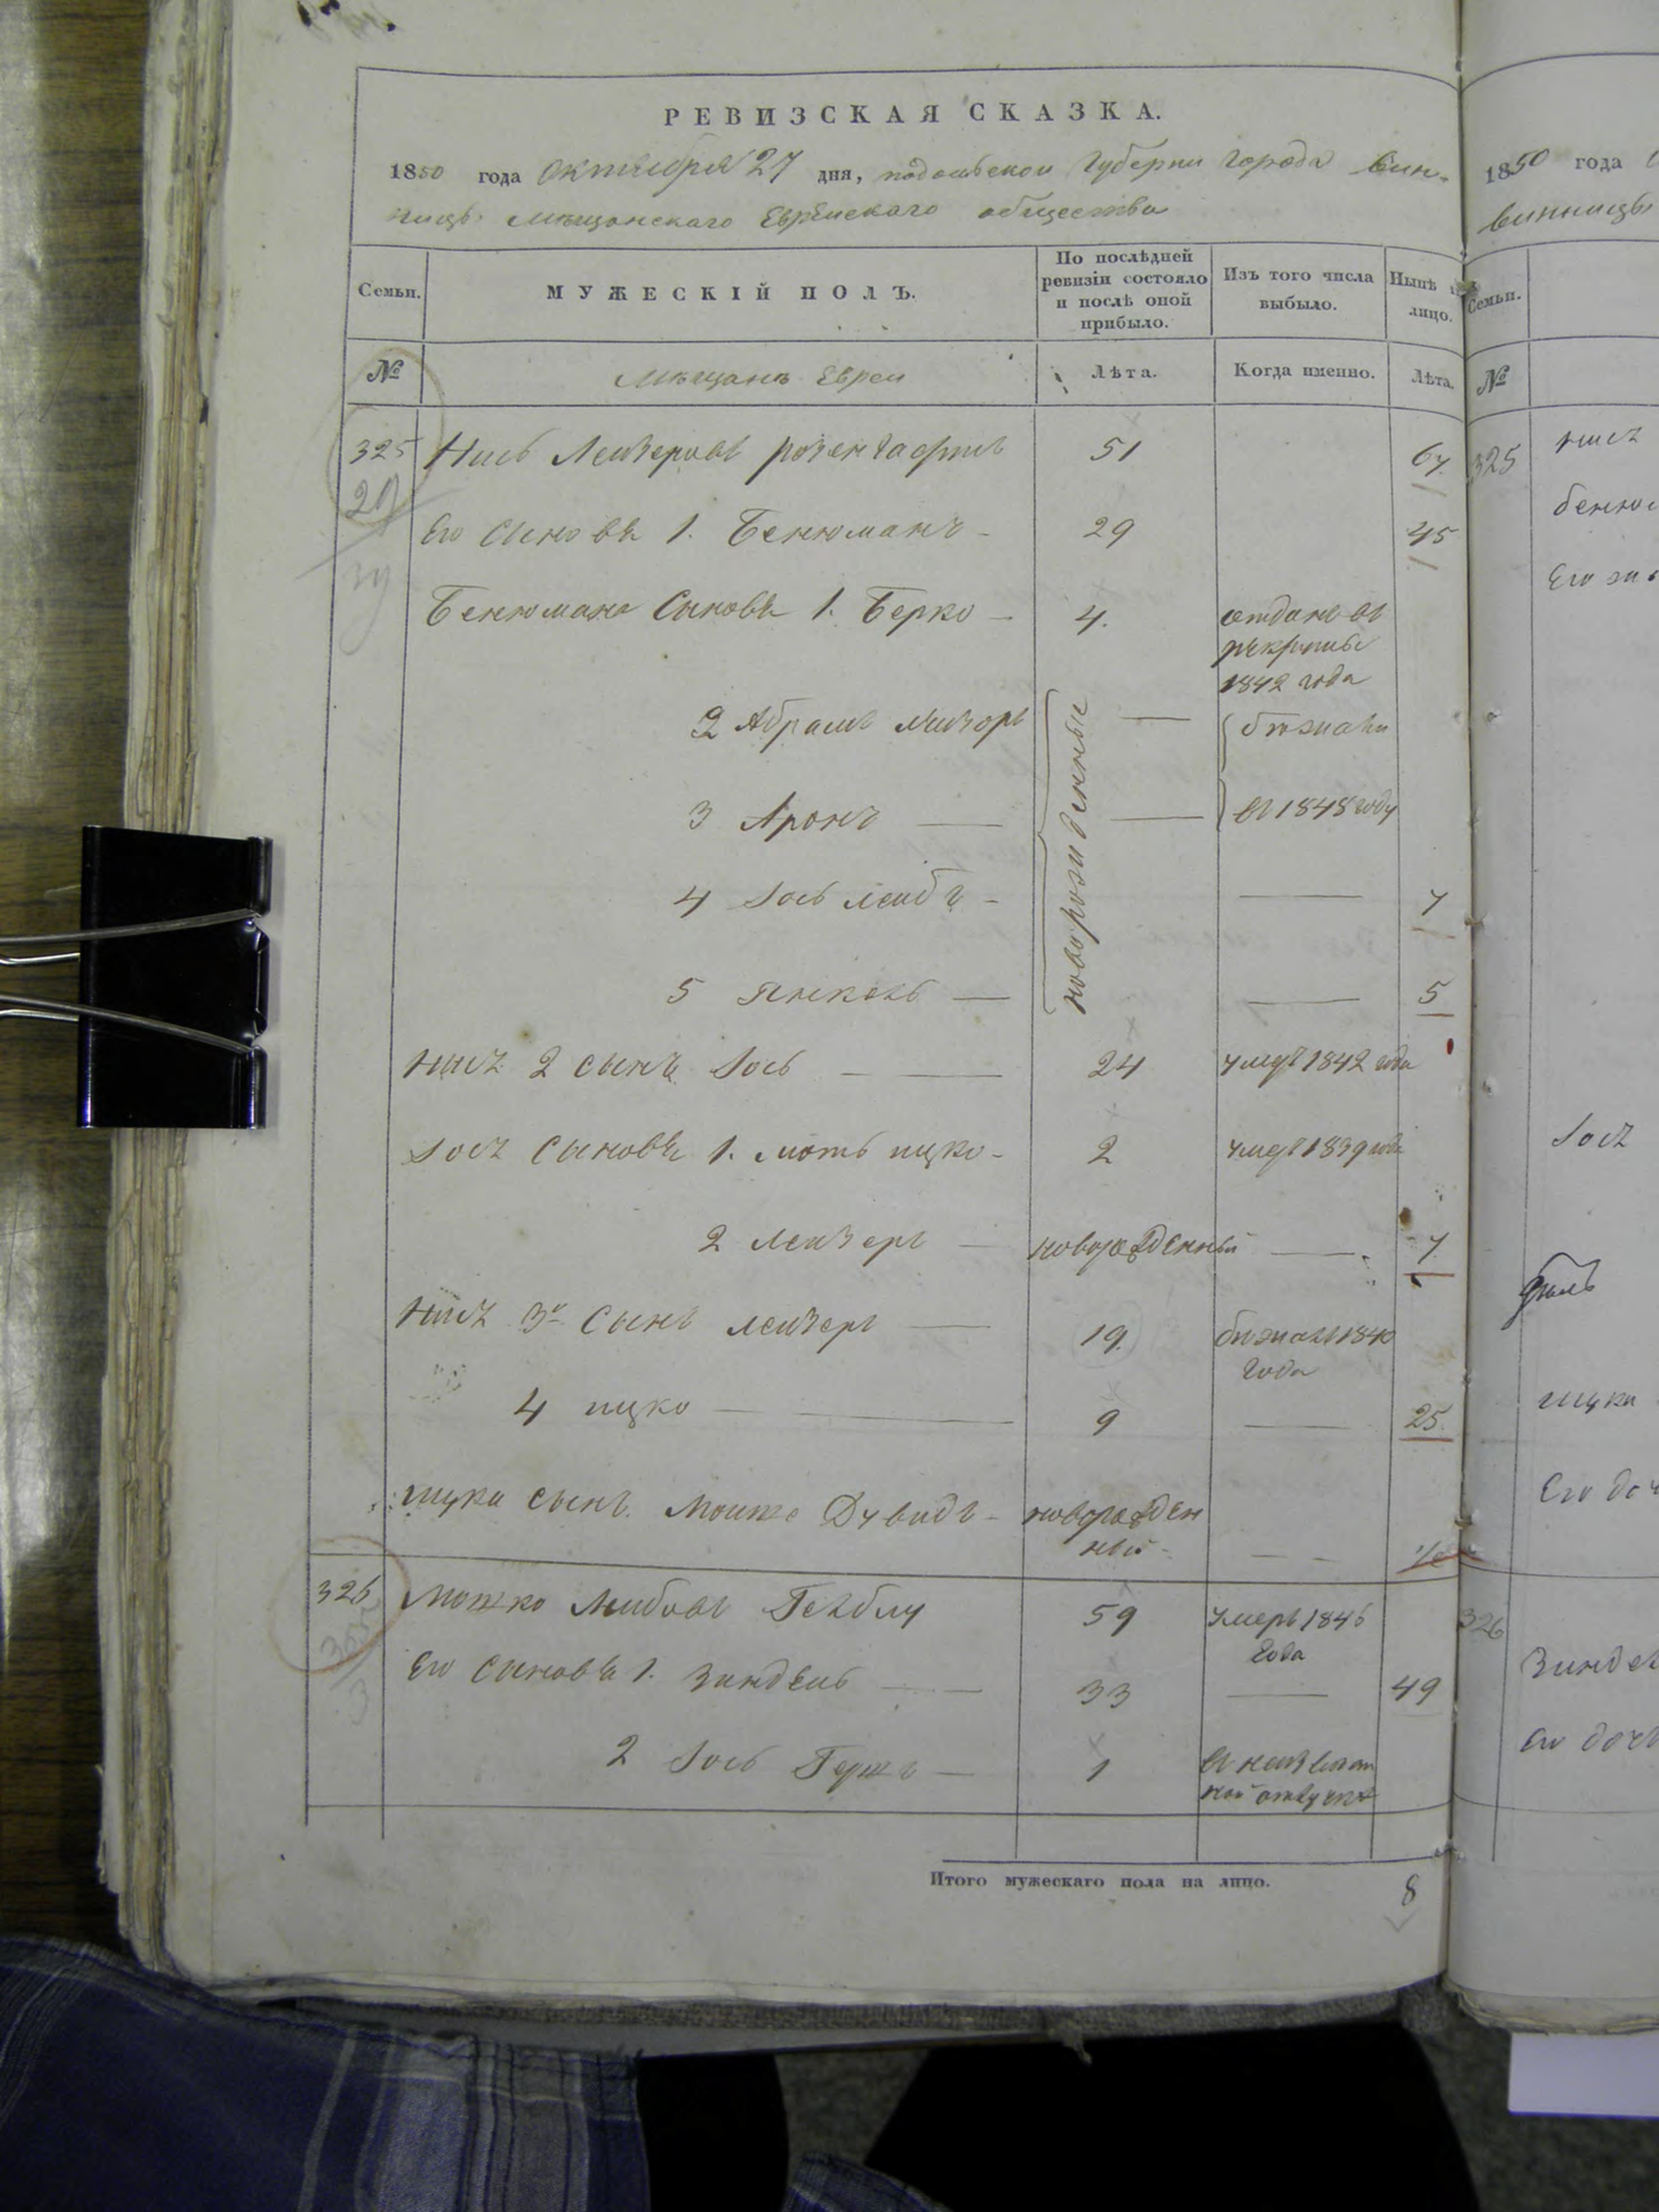 РЕВИЗСКАЯ СКАЗКА.
1850 года Октября 27 дня, подольской Губерни Города Вин-
ницы Мѣщанскаго Еврейскаго общества
Семьи.
МУЖЕСКІЙ ПОЛЪ.
По послѣдней ревизіи состояло и послѣ оной прибыло.
Изъ того числа выбыло.
Нынѣ на лицо.
№
Мѣщанъ Евреи
Лѣта.
Когда именно.
Лѣта.
325 Нись Лейзеровъ 51 67.
Его Сыновья 1. Бенюманъ - 29 45
Бенюмана Сыновья 1. Берко - 4. отданъ въ
рекруты
1842 года
2 Абрамъ Лейзоръ — бѣжали
3 Аронъ — — въ 1848 году
новорожденные
4 Іось Лейбъ - — 7
5 Янкель — — 5
Нися 2 сынъ Іось — 24 умеръ 1842 года
Іося Сыновья 1. Мотъ ицко - 2 умеръ 1839 года
2 Лейзеръ — новорожденный — 7
Нися 3й Сынъ Лейзеръ — 19. бежалъ 1840
года
4 ицко — 9 — 25.
ицка сынъ. Мошко Дувидъ - новорожден
ный -
326 Мошко Лейбовъ 59 умеръ 1846
года
Его Сыновья 1. Зиндель — 33 — 49
2 Іось Гершъ — 1 въ неизвѣст
ной отлучке
Итого мужескаго пола на лицо. 8
1850 года
Винницы
Семьи.
№
325 Нися
Его
Іося
ицка
Его доч
326
Зиндел
Его доч